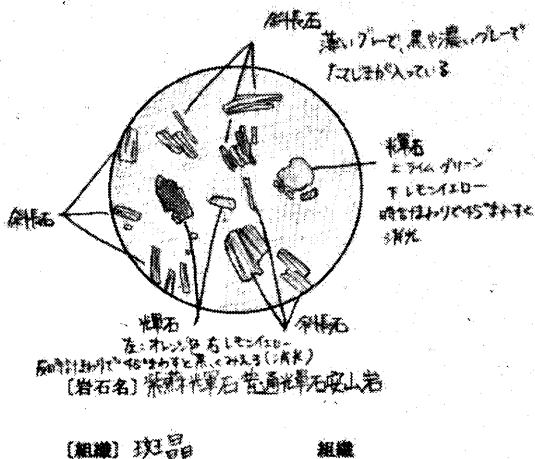 斜長石
薄いグレーで、黒や濃いグレーで
たてじまが入っている
輝石
上ライムグリーン
下レモンイエロー
時計まわりで45°まわすと
消光
斜長石
輝石
左:オレンジ色 右レモンイエロー
反時計まわりで45°まわすと黒くみえる(消光)
斜長石
〔岩石名〕紫蘇輝石普通輝石安山岩
〔組織〕斑晶 組織